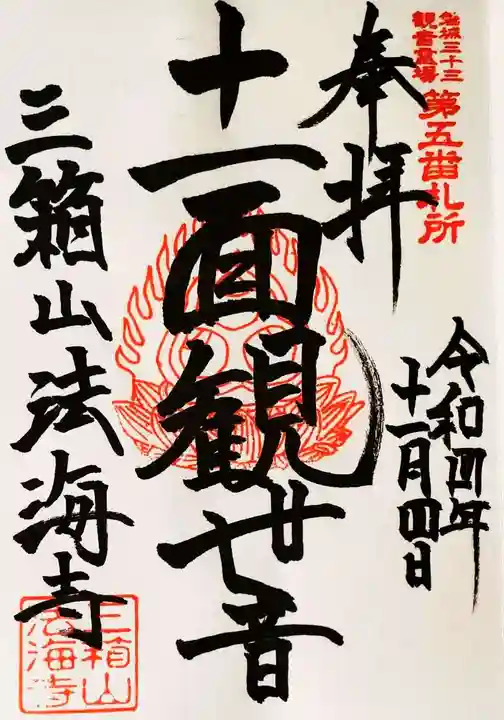 磐城三十三
観音霊場
第五番札所
奉拝
令和四年
十一月四日
十一面観世音
三箱山法海寺
三箱山
法海寺